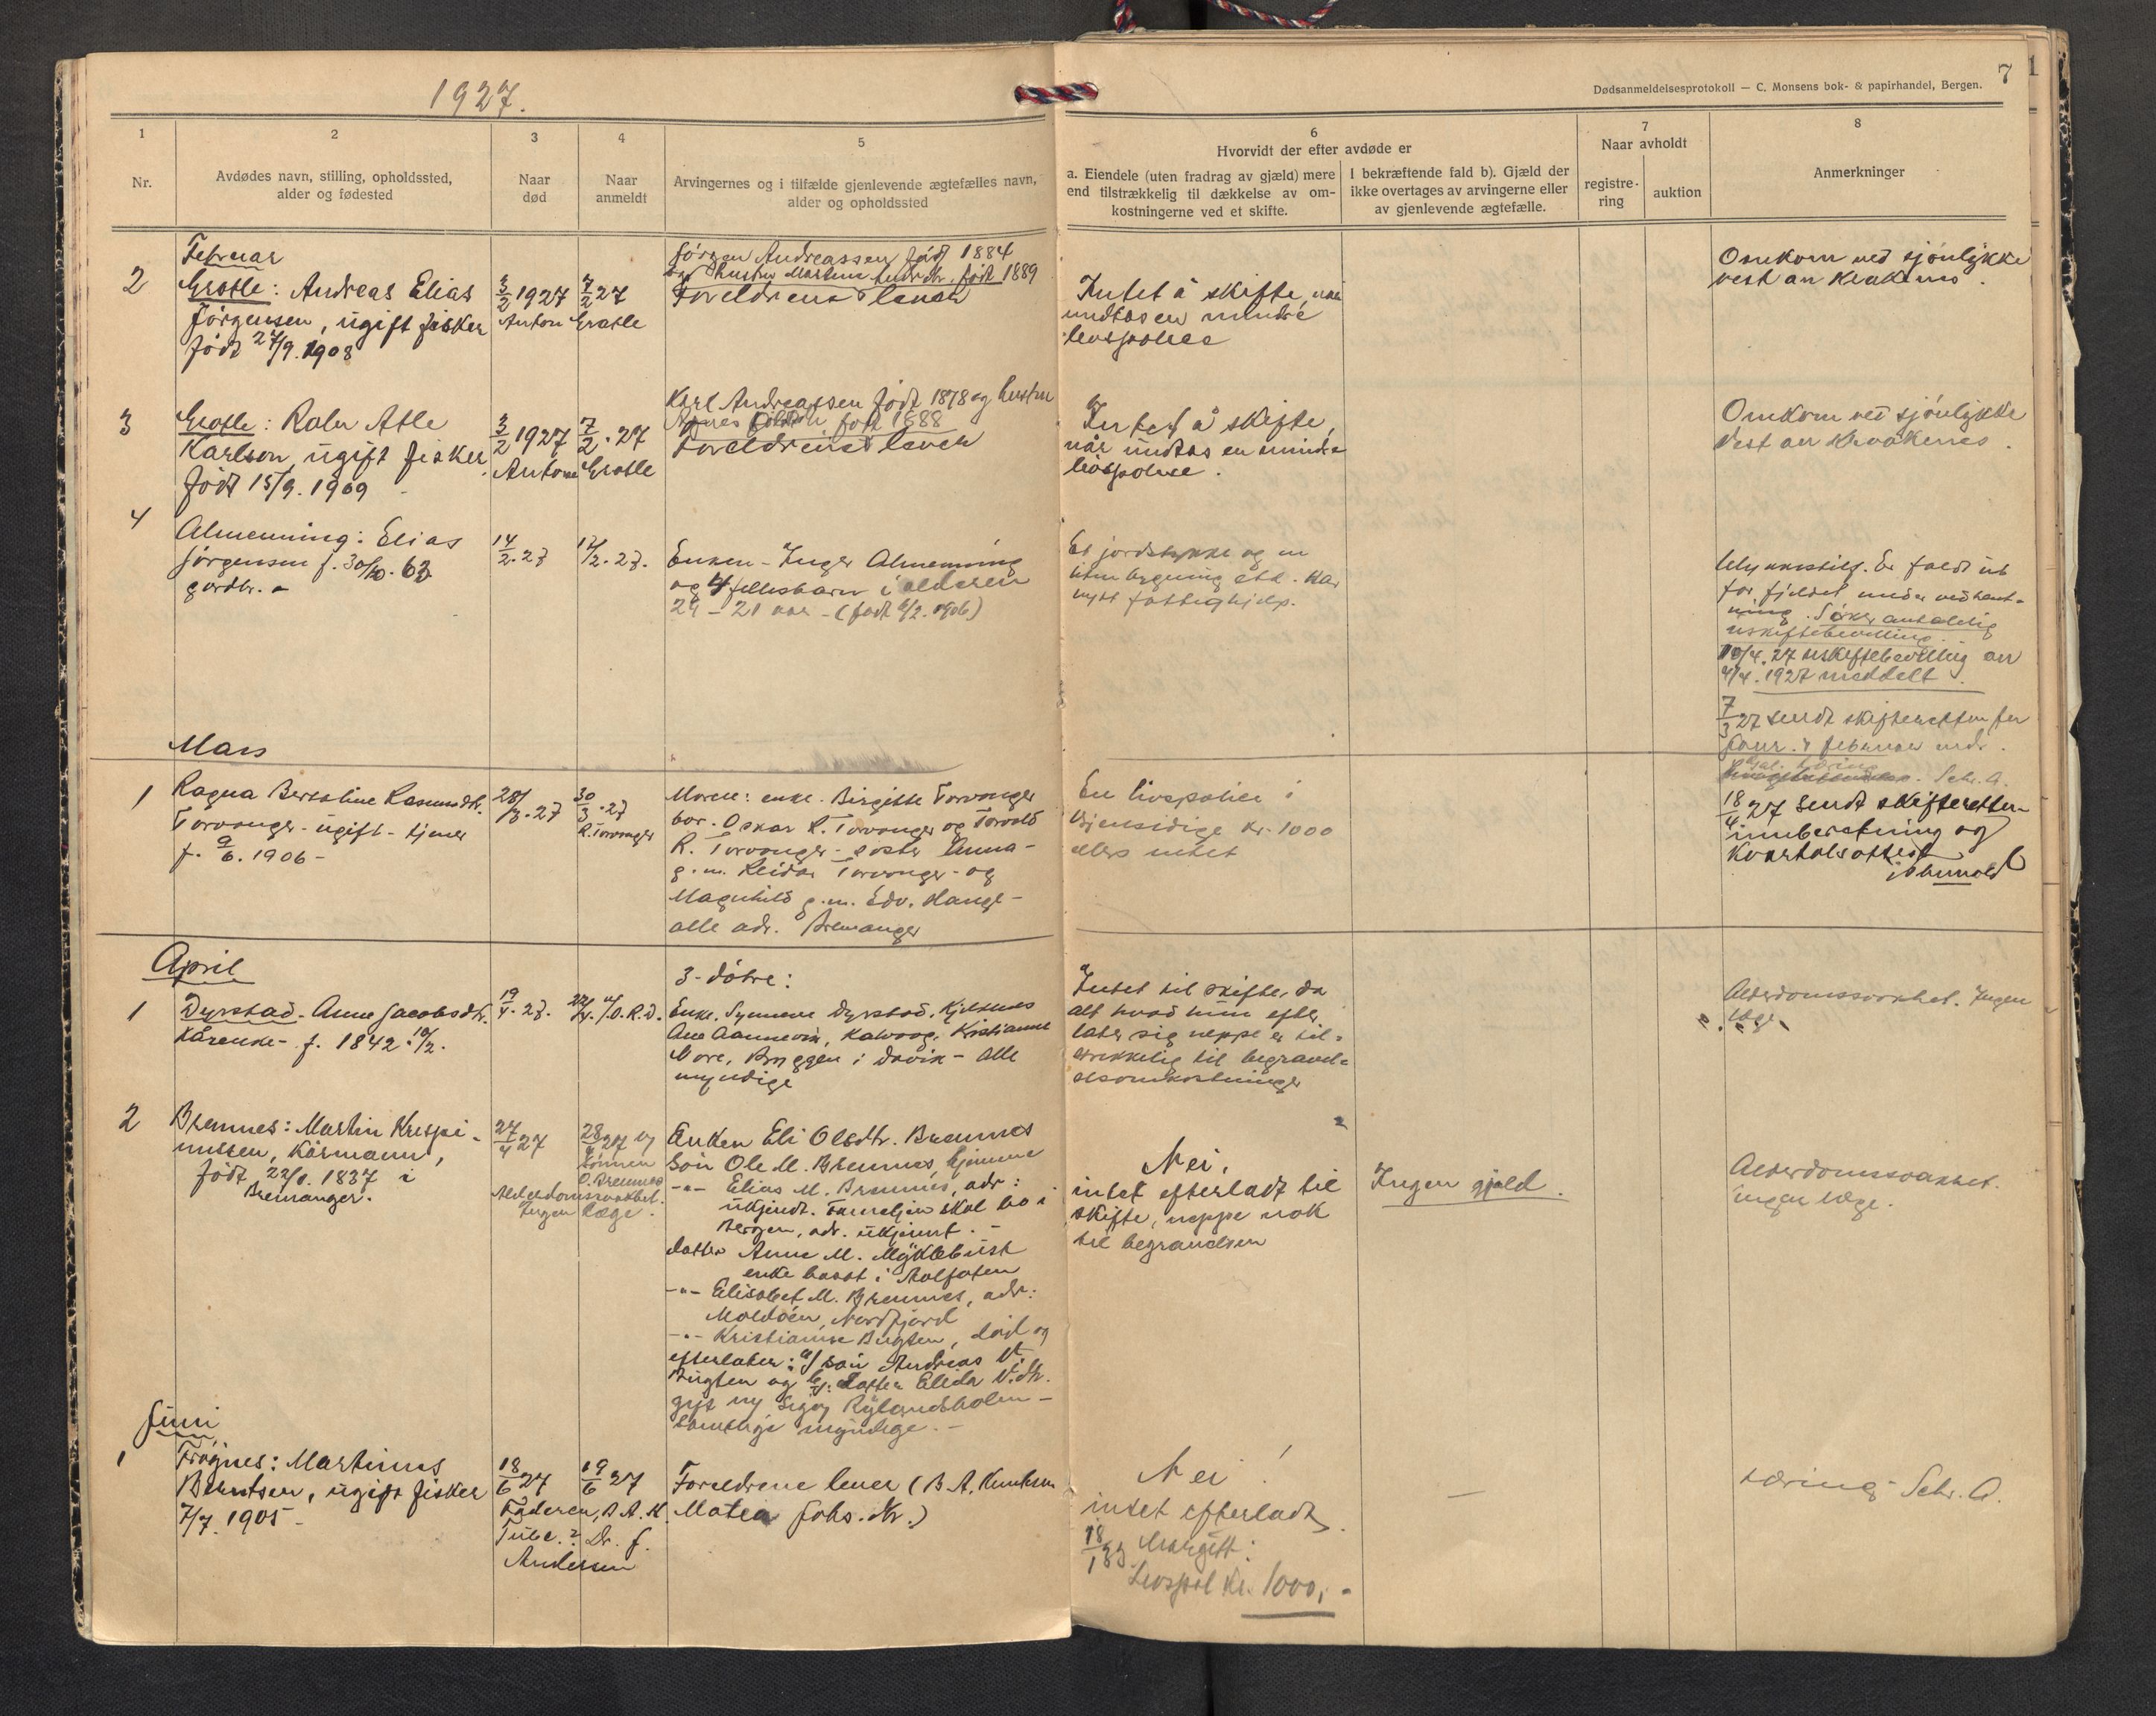 1927.
7
Dødsanmeldelsesprotokoll — C. Monsens bok- & papirhandel, Bergen.
1
Nr.
2
Avdødes navn, stilling, opholdssted,
alder og fødested
3
Naar
død
4
Naar
anmeldt
5
Arvingernes og i tilfælde gjenlevende ægtefælles navn,
alder og opholdssted
6
Hvorvidt der efter avdøde er
a. Eiendele (uten fradrag av gjæld) mere
end tilstrækkelig til dækkelse av om-
kostningerne ved et skifte.
I bekræftende fald b). Gjæld der
ikke overtages av arvingerne eller
av gjenlevende ægtefælle.
7
Naar avholdt
registre-
ring
auktion
8
Anmerkninger
Februar
2
Grotle: Andreas Elias
Jörgensen, ugift fisker
född 27/9. 1908
3/2 1927
7/2 27
Anton Grotle
Jörgen Andreassen född 1884
og hustru født 1889
Foreldrene lever
Intet å skifte, når
undtas en mindre
livspolice
Omkom ved sjöulykke
vest av Kråkenes.
3
Grotle: Atle
Karlson, ugift fisker
født 15/9. 1909
3/2 1927
7/2. 27
Anton Grotle
Karl Andreassen født 1878 og hustru
Agnes født 1888
Foreldrene lever
Intet å skifte,
når undtas en mindre
livspolice.
Omkom ved sjöulykke
vest av Kråkenes.
4
Almenning: Elias
Jörgensen f. 30/10. 63
gardbr.
14/2. 27
17/2. 27.
Enken - Inger Almenning
og 4 fellesbarn i alderen
29 - 21 aar - (født 6/2. 1906)
Et jordstykke og en
liten bygning ått. Har
nytt fattighjelp.
Ulykkestilf. Er faldt ut
for fjeldet under vedhent-
ning. Söker
uskiftebevilling.
10/4. 27 uskiftebevilling av
4/4. 1927 meddelt.
7/3 27 sendt skifteretten for
januar & februar mdr.
Schr. A.
18/4 27 Sendt skifteretten
innberetning og
kvartalsattest
Mars
1
Ragna Bertoline Rasmusdtr.
Torvanger - ugift - tjener
f. 9/6. 1906 -
28/3. 27
30/3. 27
R. Torvanger
Moren: enke. Birgitte Torvanger
bor. Oskar R. Torvanger og Torvald
R. Torvanger - söster Anna -
g. m. Reidar Torvanger - og
Magnhild g. m. Edv. Hauge -
alle adr. Bremanger
En livspolice i
Gjensidige kr. 1000
ellers intet
April
1
Dyrstad - Anne Jacobsdtr.
Kårenke - f. 1842 10/2.
19/4. 27.
22/4. /O. R. D.
3 - døtre:
Enke. Synneve Dyrstad, Kjelsnes
Ane Aannevik, Kalvaag, Kristianne
Bryggen i Davik - alle
myndige
Intet til skifte, da
alt hvad hun efter
later sig neppe er til-
strekkelig til begravel-
sesomkostninger
Alderdomssvakhet. Ingen
læge
2
Bremnes: Martin Krispi-
nussen, Kårmann,
født 22/1. 1837 i
Bremanger.
27/4 27
28/4 27 v/
sönnen
O. Bremnes
Alderdomssvakhet.
Ingen læge.
Enken Eli Olsdtr. Bremnes
Sön Ole M. Bremnes, hjemme
-"- Elias M. Bremnes, adr:
ukjendt. Familjen skal bo i
Bergen, adr. ukjent. -
datter Anne M. Myklebust
enke bosat i Aalfoten
-"- Elisabet M. Bremnes, adr:
Moldöen, Nordfjord
-"- Kristianne Bugten, död og
efterlater: a/ sön Andreas
Bugten og b/: datter Elida
gift m/ Rylandsholm -
samtlige myndige. -
Nei,
intet efterladt til
skifte, neppe nok
til begravelsen
Ingen gjæld.
Alderdomssvakhet.
ingen læge.
Juni
1
Frøynes: Martinus
Berntsen, ugift fisker
7/7. 1905 -
18/6 27
19/6 27
Faderen, B. A. K.
Tube.? Dr. J.
Andersen
Foreldrene lever (B. A. Knutsen
Matea Johs. dtr.)
Nei!
intet efterladt.
18/1 33
Livspol kr. 1000,-
—
Schr. A.